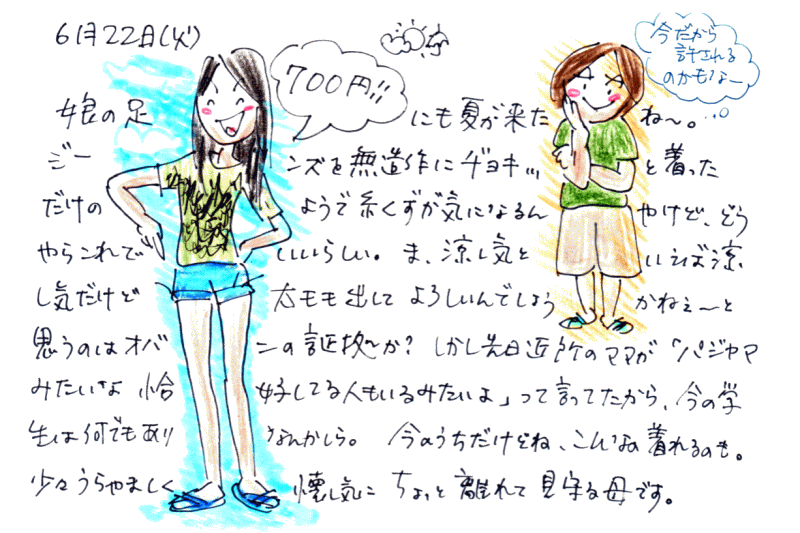 6月22日(火)
700円!!
今だから
許される
のかもなー
娘の足にも夏が来たね〜。
ジーンズを無造作にヂョキッと着った
だけのようで糸くずが気になるんやけど、どう
やらこれでいいらしい。ま、涼し気といえば涼
し気だけど太もも出してよろしいんでしょうかねぇ〜と
思うのはオバンの証拠か? しかし先日近所のママが「パジャマ
みたいな恰好してる人もいるみたいよ」って言ってたから、今の学
生は何でもありなんかしら。 今のうちだけどね、こんなの着れるのも。
少々うらやましく懐し気に ちょっと離れて見守る母です。